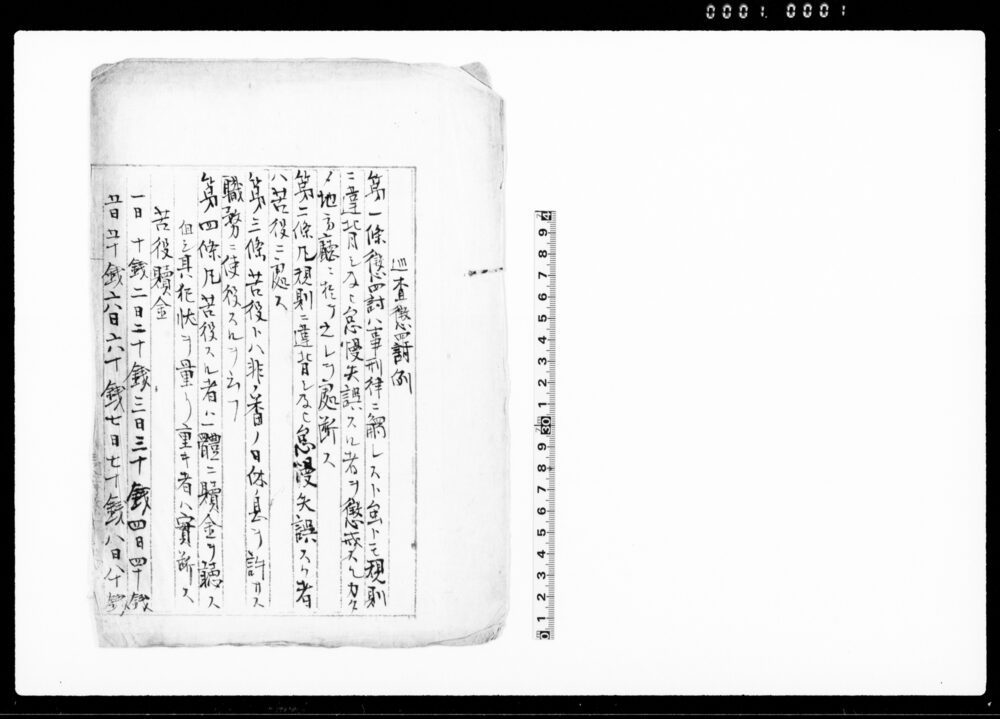 0001 0001
巡査懲罰例
第一條懲罰ハ事刑律ニ觸レスト虽トモ規則
ニ違背シ及ヒ怠慢失誤スル者ヲ懲戒スル
地方廳ニ於テ之レヲ處断ス
第二條凡規則ニ違背シ及ヒ怠慢失誤スル者
ハ苦役ニ處ス
第三條苦役トハ非番ノ日休息ヲ許サス
職務ニ使役スルヲ云フ
第四條凡苦役スル者ハ一體ニ贖金ヲ聴ス
但シ其犯状ヲ量リ重キ者ハ實断ス
苦役贖金
一日十銭二日二十銭三日三十銭四日四十銭
五日五十銭六日六十銭七日七十銭八日八十銭
0 1 2 3 4 5 6 7 8 9 30 1 2 3 4 5 6 7 8 9 4